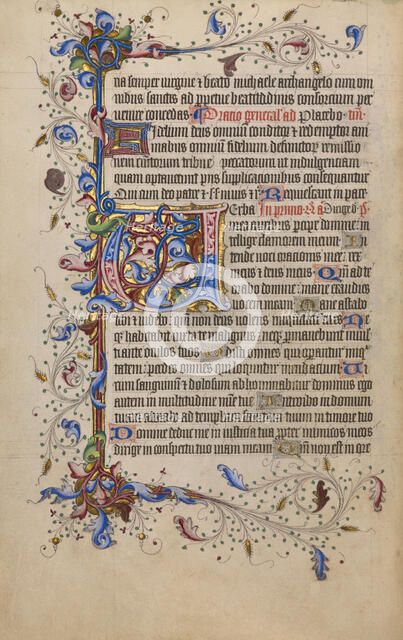 na semper virgine & beato michaele archangelo cum om
nibus sanctis ad p̄petue beatitudinis consorcium per
uenire concedas Oracio gen̄al ad Placebo
Fidelium deus omnium conditor & redemptor ani
mabus omnium fidelium defunctor remissio
nem cunctorum tribue peccatorum ut indulgenciam
quam optauerunt pijs supplicationibus consequantur
Qui cum deo patre & Requiescant in pace
Verba In primo
mea auribus percipe domine in
tellige clamorem meum In
tende uoci oracionis mee rex
meus & deus meus Qm̄ ad te
orabo domine mane exaudies
uocem meam Mane astabo
tibi & uidebo qm̄ non deus uolens iniquitatē tu es Ne
q̄ habitabit iuxta te malignus neq̄ permanebunt iniusti
ante oculos tuos Odisti omnes qui operantur iniqui
tatem perdes omnes qui loquuntur mendacium Ui
rum sanguinū & dolosum abhominabitur dominus ego
autem in multitudine mīe tue Introibo in domum
tuam adorabo ad templum sanctum tuum in timore tuo
Domine deduc me in iusticia tua propter inimicos meos
dirige in conspectu tuo uiam meam Qm̄ non est in ore